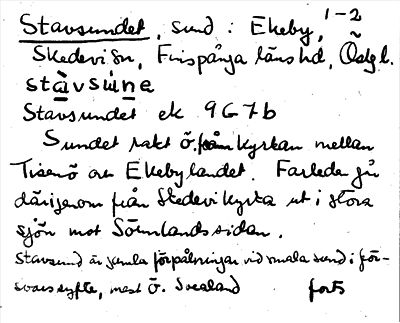 Stavsundet, sund i Ekeby, 1-2
Skedevi sn, Finspånga läns hd, Östgl.
stàvsúne
Stavsundet ek 9G7b
Sundet rakt ö. från kyrkan mellan
Tisenö och Ekebylandet. Farleden gå
därigenom från Skedevi kyrka ut i stora
sjön mot Sörmlandssidan.
Stavsund är gamla förpålningar vid smala sund i för-
svarssyfte, mest ö. Svealand forts